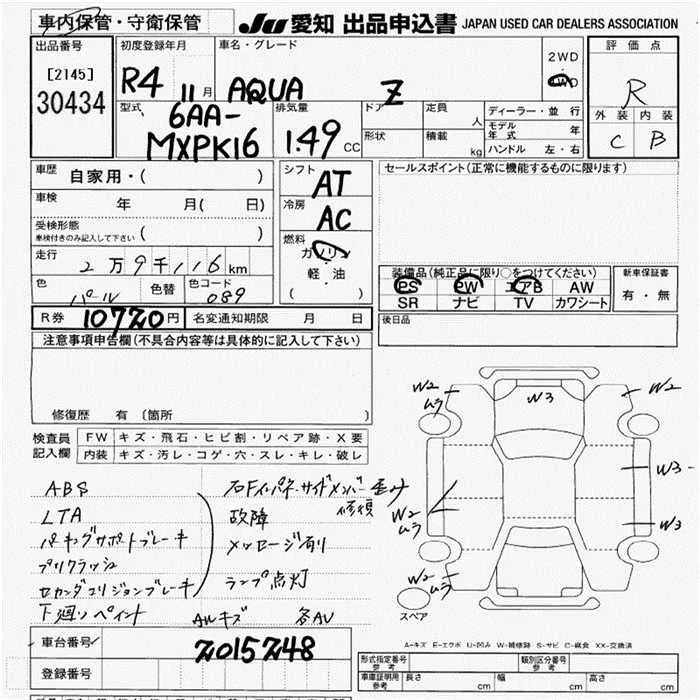 車内保管・守衛保管 JU 愛知 出品申込書 JAPAN USED CAR DEALERS ASSOCIATION
出品番号 初度登録年月 車名・グレード 2WD 評価点
[2145] R4 11月 AQUA Z 4WD R
30434 型式 排気量 ドア 定員 人 ディーラー・並行 外装 内装
6AA- モデル年式 年
MXPK16 1.49 CC 形状 積載 kg ハンドル 左・右 C B
車歴 自家用・( ) シフト AT セールスポイント(正常に機能するものに限ります)
車検 年 月( 日) 冷房 AC
受検形態
車検付きのみ記入して下さい ( ) 燃料 ガソリン
走行 2万9千116km 軽・油 装備品(純正品に限り○をつけてください) 新車保証書
色 パール 色替 色コード 089 ( ) PS PW エアB AW 有・無
SR ナビ TV カワシート
R券 10720円 名変通知期限 月 日 後日品
注意事項申告欄(不具合内容等は具体的に記入して下さい)
修復歴 有 〔箇所 〕
検査員 FW キズ・飛石・ヒビ割・リペア跡・X要
記入欄 内装 キズ・汚レ・コゲ・穴・スレ・キレ・破レ
W2 ムラ W3 W2
W3
W2 ムラ W3
W2 ムラ
スペア
ABS 右Fインパネ・サイドメンバー歪み
LTA 故障 修復
パーキングサポートブレーキ メッセージ有り
プリクラッシュ
セカンダリコリジョンブレーキ ランプ点灯
下廻りペイント AWキズ 各AU
A=キズ E=エクボ U=凹み W=補修跡 S=サビ C=腐食 XX=交換済
車台番号 2015248
登録番号
形式指定番号 参考 類別区分番号 参考
車庫証明用 参考 長さ cm 幅 cm 高さ cm